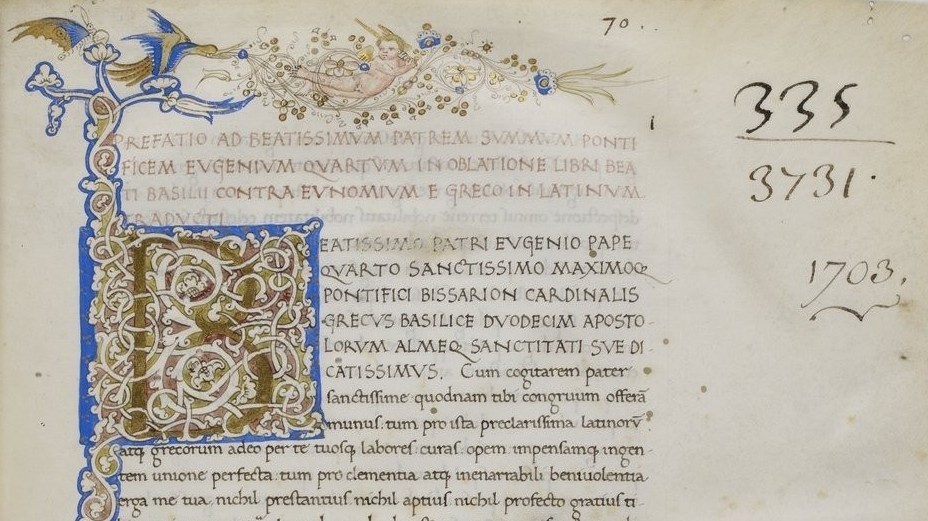 70.
335
3731.
1703.
PREFATIO AD BEATISSIMVM PATREM SVMMVM PONTI
FICEM EVGENIVM QVARTVM IN OBLATIONE LIBRI BEA
TI BASILII CONTRA EVNOMIVM E GRECO IN LATINVM
TRADVCTI
BEATISSIMO PATRI EVGENIO PAPE
QVARTO SANCTISSIMO MAXIMOQ
PONTIFICI BISSARION CARDINALIS
GRECVS BASILICE DVODECIM APOSTO
LORVM ALMEQ SANCTITATI SVE DI
CATISSIMVS. Cum cogitarem pater
sanctissime quodnam tibi congruum offerā
munus: tum pro ista preclarissima latinorū
atq grecorum adeo per te tuosq labores: curas: opem impensamq ingen-
tem unione perfecta: tum pro clementia atq inenarrabili beniuolentia
erga me tua, nichil prestantius nichil aptius: nichil profecto gratius ti-